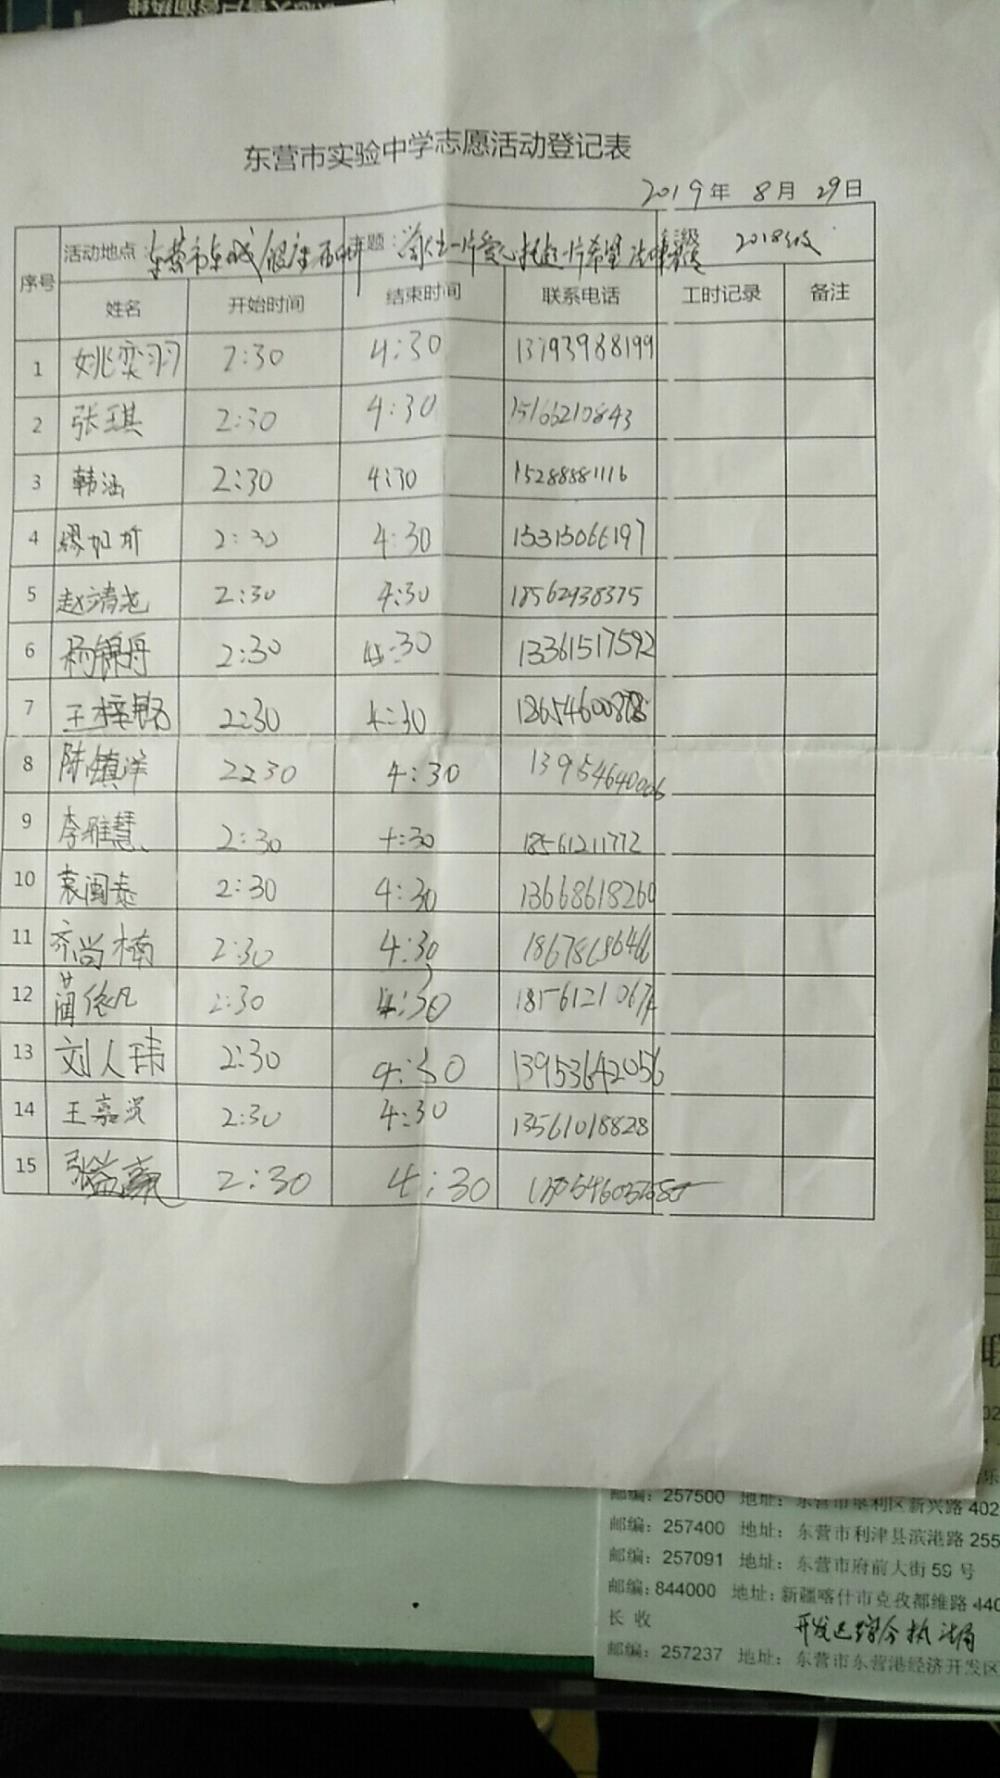 东营市实验中学志愿活动登记表
2019年 8月 29日
序号 活动地点:东营市东城银座 主题: 2018级
姓名 开始时间 结束时间 联系电话 工时记录 备注
1 姚奕羽 2:30 4:30 13793988199
2 张琪 2:30 4:30 15166210843
3 韩涵 2:30 4:30 15288881116
4 2:30 4:30 15315066197
5 赵清尧 2:30 4:30 18562938375
6 杨锦丹 2:30 4:30 13361517592
7 王梓铭 2:30 4:30
8 陈镇洋 2:30 4:30 13954640006
9 李雅慧 2:30 4:30 18561211772
10 袁闽泰 2:30 4:30 13668618260
11 齐尚楠 2:30 4:30
12 蔺依凡 2:30 4:30
13 刘人玮 2:30 4:30 13953642056
14 2:30 4:30 13561018828
15 2:30 4:30
邮编:257500 地址:东营市垦利区新兴路402
邮编:257400 地址:东营市利津县滨港路255
邮编:257091 地址:东营市府前大街59号
邮编:844000 地址:新疆喀什市克孜都维路440
长 收
邮编:257237 地址:东营市东营港经济开发区